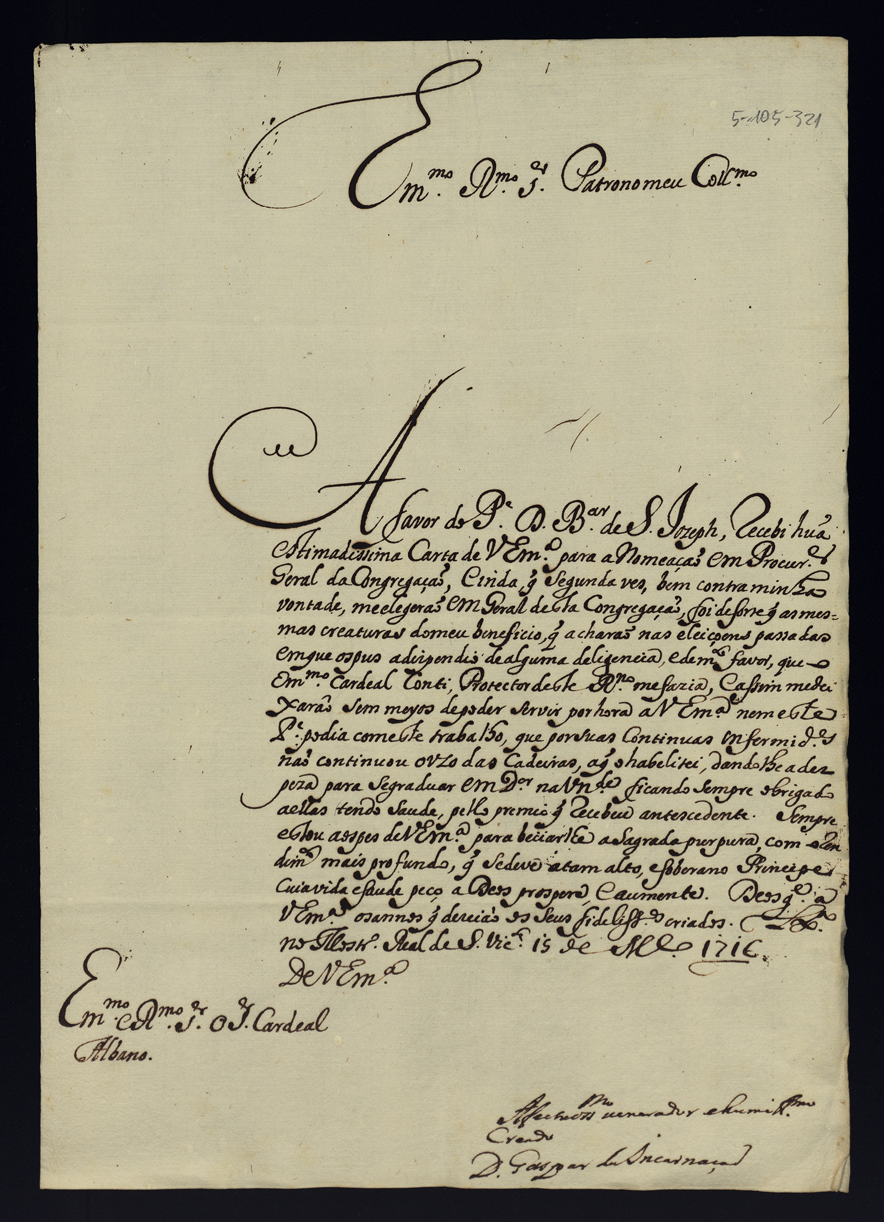 5-105-321
Em.mo R.mo S.or Patrono meu Coll.mo
A favor do P.e D. B.ar de S. Jozeph, recebi huã
estimadissima Carta de V Em.a para a Nomeaçaõ em Procur.or
Geral da Congregaçaõ, e inda q̃ segunda ves, bem contra minha
vontade, me elegeraõ em Geral desta Congregaçaõ, foi de sorte q̃ as mes=
mas creaturas do meu beneficio, q̃ acharaõ nas eleiçoens passadas
em que os pus a dispendio de alguma deligencia, e de m.to favor, que o
Em.mo Cardeal Conti, Protector deste R.no me fazia, e assim me dei
xaraõ sem meyos de poder servir por hora a V Em.a nem este
P.e podia com este trabalho, que por suas continuas infermid.es
naõ continuou o vzo das Cadeiras, a q̃ o habelitei, dandolhe a des
peza para se graduar em D.or na Vn.de ficando sempre obrigado
a ellas tendo saude, pello premio q̃ recebeu antescedente. Sempre
estou aos pes de V Em.a para beciarlhe a sagrada purpura, com o ren
dim.to mais profundo, q̃ se deve a tam alto, e soberano Principe
Cuia vida e saude peço a Deos prospere, e aumente. Deos g.e a
V Em.a os annos q̃ deseiaõ os seus fideliss.os criados. Lx.a
no Mostr.o Real de S. Vic.te 15 de 1716.
De V Em.a
Em.mo e R.mo S.or O S.or Cardeal
Albano.
Afectuoss.mo venerador e humil.mo
Creado
D. Gaspar da Incarnaçaõ